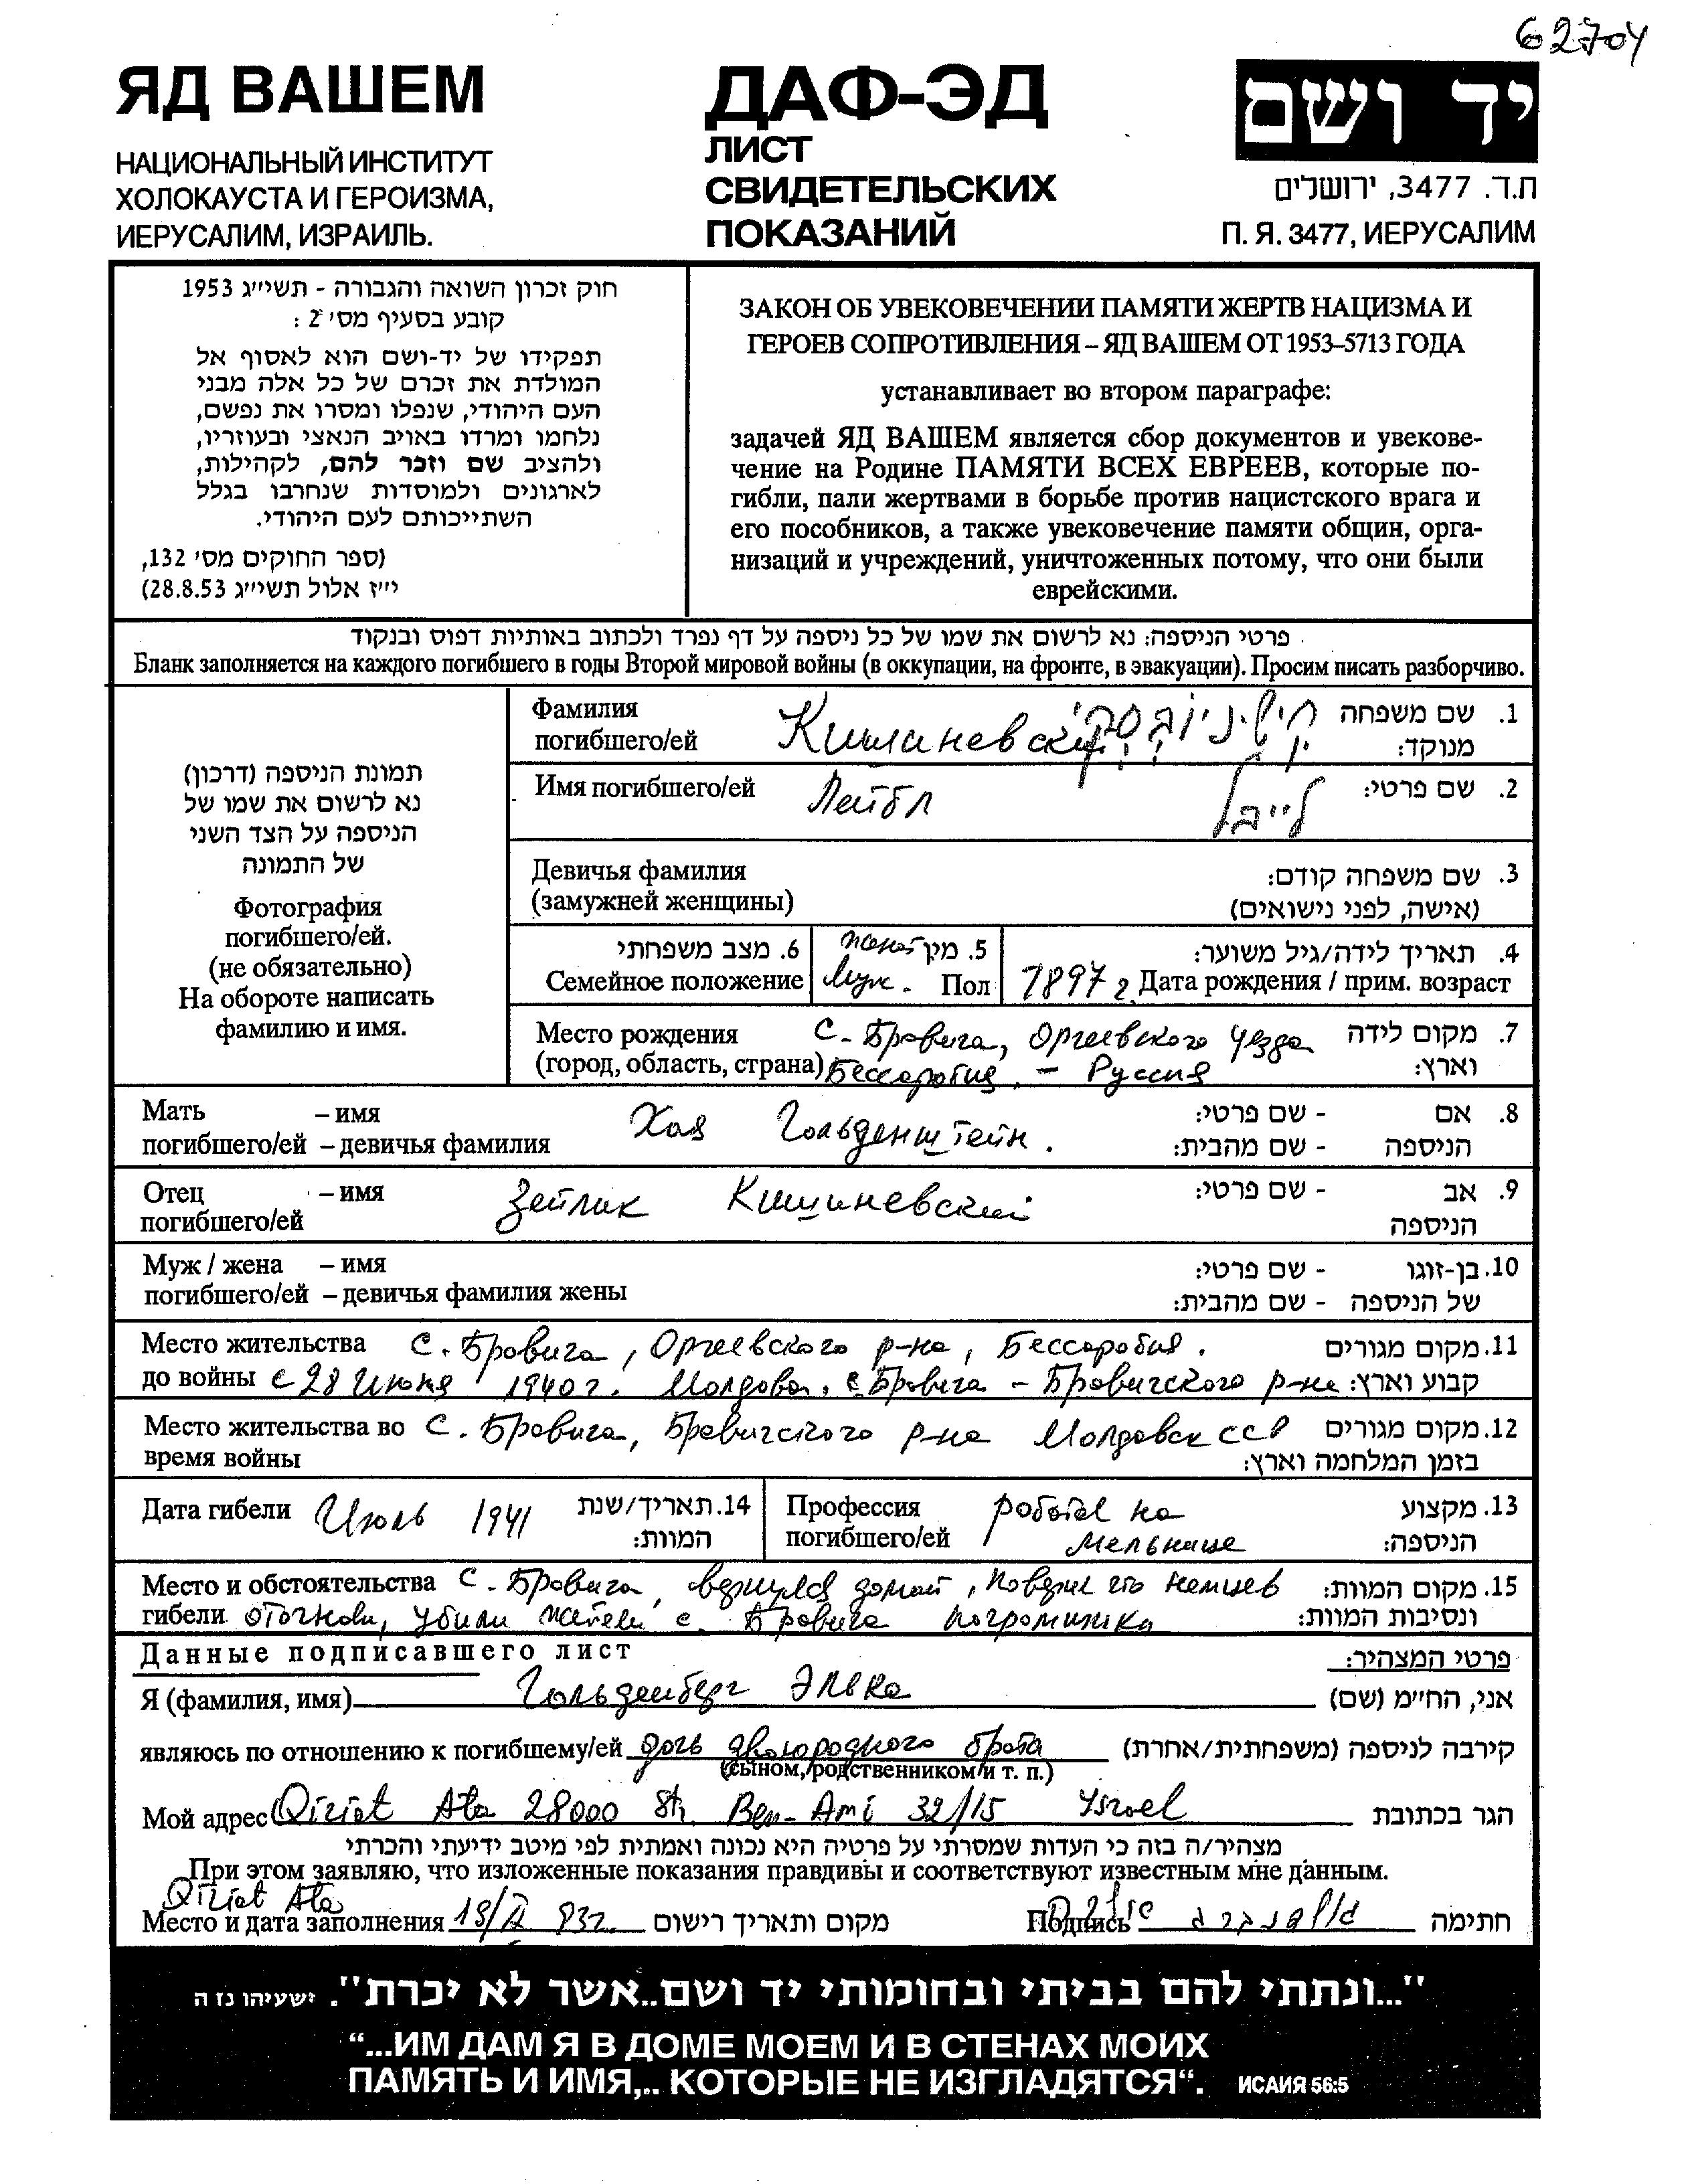 62704
ЯД ВАШЕМ
НАЦИОНАЛЬНЫЙ ИНСТИТУТ
ХОЛОКАУСТА И ГЕРОИЗМА,
ИЕРУСАЛИМ, ИЗРАИЛЬ.
ДАФ-ЭД
ЛИСТ
СВИДЕТЕЛЬСКИХ
ПОКАЗАНИЙ
יד ושם
ת.ד. 3477, ירושלים
П. Я. 3477, ИЕРУСАЛИМ
חוק זכרון השואה והגבורה - תשי״ג 1953
קובע בסעיף מס׳ 2 :
תפקידו של יד-ושם הוא לאסוף אל
המולדת את זכרם של כל אלה מבני
העם היהודי, שנפלו ומסרו את נפשם,
נלחמו ומרדו באויב הנאצי ובעוזריו,
ולהציב שם וזכר להם, לקהילות,
לארגונים ולמוסדות שנחרבו בגלל
השתייכותם לעם היהודי.
(ספר החוקים מס׳ 132,
י״ז אלול תשי״ג 28.8.53)
ЗАКОН ОБ УВЕКОВЕЧЕНИИ ПАМЯТИ ЖЕРТВ НАЦИЗМА И
ГЕРОЕВ СОПРОТИВЛЕНИЯ – ЯД ВАШЕМ ОТ 1953–5713 ГОДА
устанавливает во втором параграфе:
задачей ЯД ВАШЕМ является сбор документов и увекове-
чение на Родине ПАМЯТИ ВСЕХ ЕВРЕЕВ, которые по-
гибли, пали жертвами в борьбе против нацистского врага и
его пособников, а также увековечение памяти общин, орга-
низаций и учреждений, уничтоженных потому, что они были
еврейскими.
פרטי הניספה: נא לרשום את שמו של כל ניספה על דף נפרד ולכתוב באותיות דפוס ובנקוד
Бланк заполняется на каждого погибшего в годы Второй мировой войны (в оккупации, на фронте, в эвакуации). Просим писать разборчиво.
תמונת הניספה (דרכון)
נא לרשום את שמו של
הניספה על הצד השני
של התמונה
Фотография
погибшего/ей.
(не обязательно)
На обороте написать
фамилию и имя.
Фамилия
погибшего/ей Кишиневский
1. שם משפחה
מנוקד:
Имя погибшего/ей Лейбл לייבל 2. שם פרטי:
Девичья фамилия
(замужней женщины)
3. שם משפחה קודם:
(אישה, לפני נישואים)
6. מצב משפחתי
Семейное положение
5. מין
Муж. Пол
4. תאריך לידה/גיל משוער:
1897 г. Дата рождения / прим. возраст
Место рождения С. Бровича, Оргеевского уезда
(город, область, страна) Бессарабия, – Руссия
7. מקום לידה
וארץ:
Мать – имя Хая Гольденштейн.
погибшего/ей – девичья фамилия
8. אם - שם פרטי:
הניספה - שם מהבית:
Отец – имя Зейлик Кишиневский
погибшего/ей
9. אב - שם פרטי:
הניספה
Муж / жена – имя
погибшего/ей – девичья фамилия жены
10. בן-זוגו - שם פרטי:
של הניספה - שם מהבית:
Место жительства С. Бровича, Оргеевского р-на, Бессарабия.
до войны с 28 Июня 1940 г. Молдова, с. Бровича – Бровичского р-на
11. מקום מגורים
קבוע וארץ:
Место жительства во С. Бровича, Бровичского р-на Молдовск ССР
время войны
12. מקום מגורים
בזמן המלחמה וארץ:
Дата гибели Июль 1941
14. תאריך/שנת
המוות:
Профессия работал на
погибшего/ей мельнице
13. מקצוע
הניספה:
Место и обстоятельства С. Бровича, вернулся домой,
гибели убили жители с. Бровича погромщики
15. מקום המוות:
ונסיבות המוות:
Данные подписавшего лист
פרטי המצהיר:
Я (фамилия, имя) Гольденберг Элька אני, החי״מ (שם)
являюсь по отношению к погибшему/ей дочь двоюродного брата קירבה לניספה (משפחתית/אחרת)
(сыном, родственником и т. п.)
Мой адрес Qiriat Ata 28000 Str. Ben-Ami 32/15 Ysrael הגר בכתובת
מצהיר/ה בזה כי העדות שמסרתי על פרטיה היא נכונה ואמתית לפי מיטב ידיעתי והכרתי
При этом заявляю, что изложенные показания правдивы и соответствуют известным мне данным.
Qiriat Ata
Место и дата заполнения מקום ותאריך רישום
Подпись חתימה
"...ונתתי להם בביתי ובחומותי יד ושם..אשר לא יכרת". ישעיהו נו ה
“...ИМ ДАМ Я В ДОМЕ МОЕМ И В СТЕНАХ МОИХ
ПАМЯТЬ И ИМЯ,.. КОТОРЫЕ НЕ ИЗГЛАДЯТСЯ“. ИСАИЯ 56:5